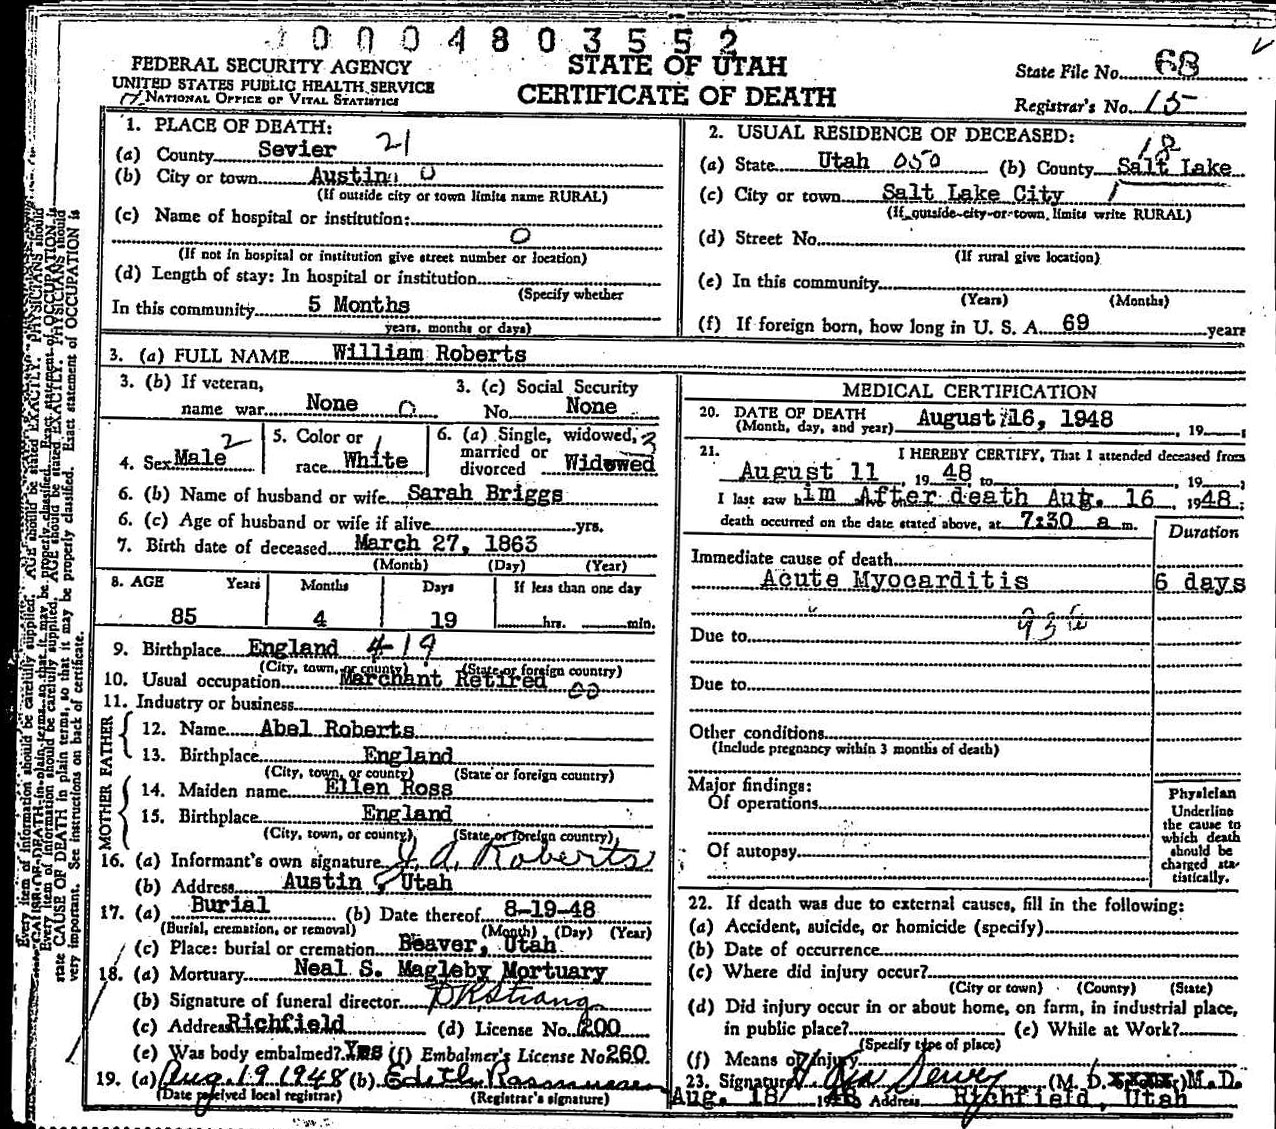 0004803552
FEDERAL SECURITY AGENCY
UNITED STATES PUBLIC HEALTH SERVICE
NATIONAL OFFICE OF VITAL STATISTICS
STATE OF UTAH
CERTIFICATE OF DEATH
State File No. 68
Registrar's No. 15
1. PLACE OF DEATH: 21
(a) County Sevier
(b) City or town Austin 0
(If outside city or town limits name RURAL)
(c) Name of hospital or institution:
0
(If not in hospital or institution give street number or location)
(d) Length of stay: In hospital or institution
(Specify whether
In this community 5 Months
years, months or days)
2. USUAL RESIDENCE OF DECEASED:
18
(a) State Utah 050 (b) County Salt Lake
(c) City or town Salt Lake City 1
(If outside city or town limits write RURAL)
(d) Street No.
(If rural give location)
(e) In this community
(Years) (Months)
(f) If foreign born, how long in U. S. A. 69 years
3. (a) FULL NAME William Roberts
3. (b) If veteran,
name war None 0
3. (c) Social Security
No. None
4. Sex Male 2
5. Color or
race White 1
6. (a) Single, widowed, 3
married or
divorced Widowed
6. (b) Name of husband or wife Sarah Briggs
6. (c) Age of husband or wife if alive yrs.
7. Birth date of deceased March 27, 1863
(Month) (Day) (Year)
8. AGE Years Months Days If less than one day
85 4 19 hrs. min.
9. Birthplace England 4-19
(City, town, or county) (State or foreign country)
10. Usual occupation Merchant Retired 00
11. Industry or business
FATHER
12. Name Abel Roberts
13. Birthplace England
(City, town, or county) (State or foreign country)
MOTHER
14. Maiden name Ellen Ross
15. Birthplace England
(City, town, or county) (State or foreign country)
16. (a) Informant's own signature J. A. Roberts
(b) Address Austin, Utah
17. (a) Burial (b) Date thereof 8-19-48
(Burial, cremation, or removal) (Month) (Day) (Year)
(c) Place: burial or cremation Beaver, Utah
18. (a) Mortuary Neal S. Magleby Mortuary
(b) Signature of funeral director
(c) Address Richfield (d) License No. 200
(e) Was body embalmed? Yes (f) Embalmer's License No. 260.
19. (a) Aug. 19 1948 (b) Edith Rasmussen
(Date received local registrar) (Registrar's signature)
MEDICAL CERTIFICATION
20. DATE OF DEATH
(Month, day, and year) August 16, 1948, 19
21. I HEREBY CERTIFY, That I attended deceased from
August 11, 1948, to , 19 ;
I last saw him After death Aug. 16, 1948;
death occurred on the date stated above, at 7:30 a m.
Duration
Immediate cause of death
Acute Myocarditis 6 days
Due to
Due to
Other conditions
(Include pregnancy within 3 months of death)
Major findings:
Of operations
Of autopsy
Physician
Underline
the cause to
which death
should be
charged sta-
tistically.
22. If death was due to external causes, fill in the following:
(a) Accident, suicide, or homicide (specify)
(b) Date of occurrence
(c) Where did injury occur?
(City or town) (County) (State)
(d) Did injury occur in or about home, on farm, in industrial place,
in public place? (e) While at Work?
(Specify type of place)
(f) Means of Injury
23. Signature Dewey (M. D. XXXX) M.D.
Aug. 18 1948 Address Richfield, Utah
Every item of information should be carefully supplied. AGE should be stated EXACTLY. PHYSICIANS should
state CAUSE OF DEATH in plain terms, so that it may be properly classified. Exact statement of OCCUPATION is
very important. See instructions on back of certificate.